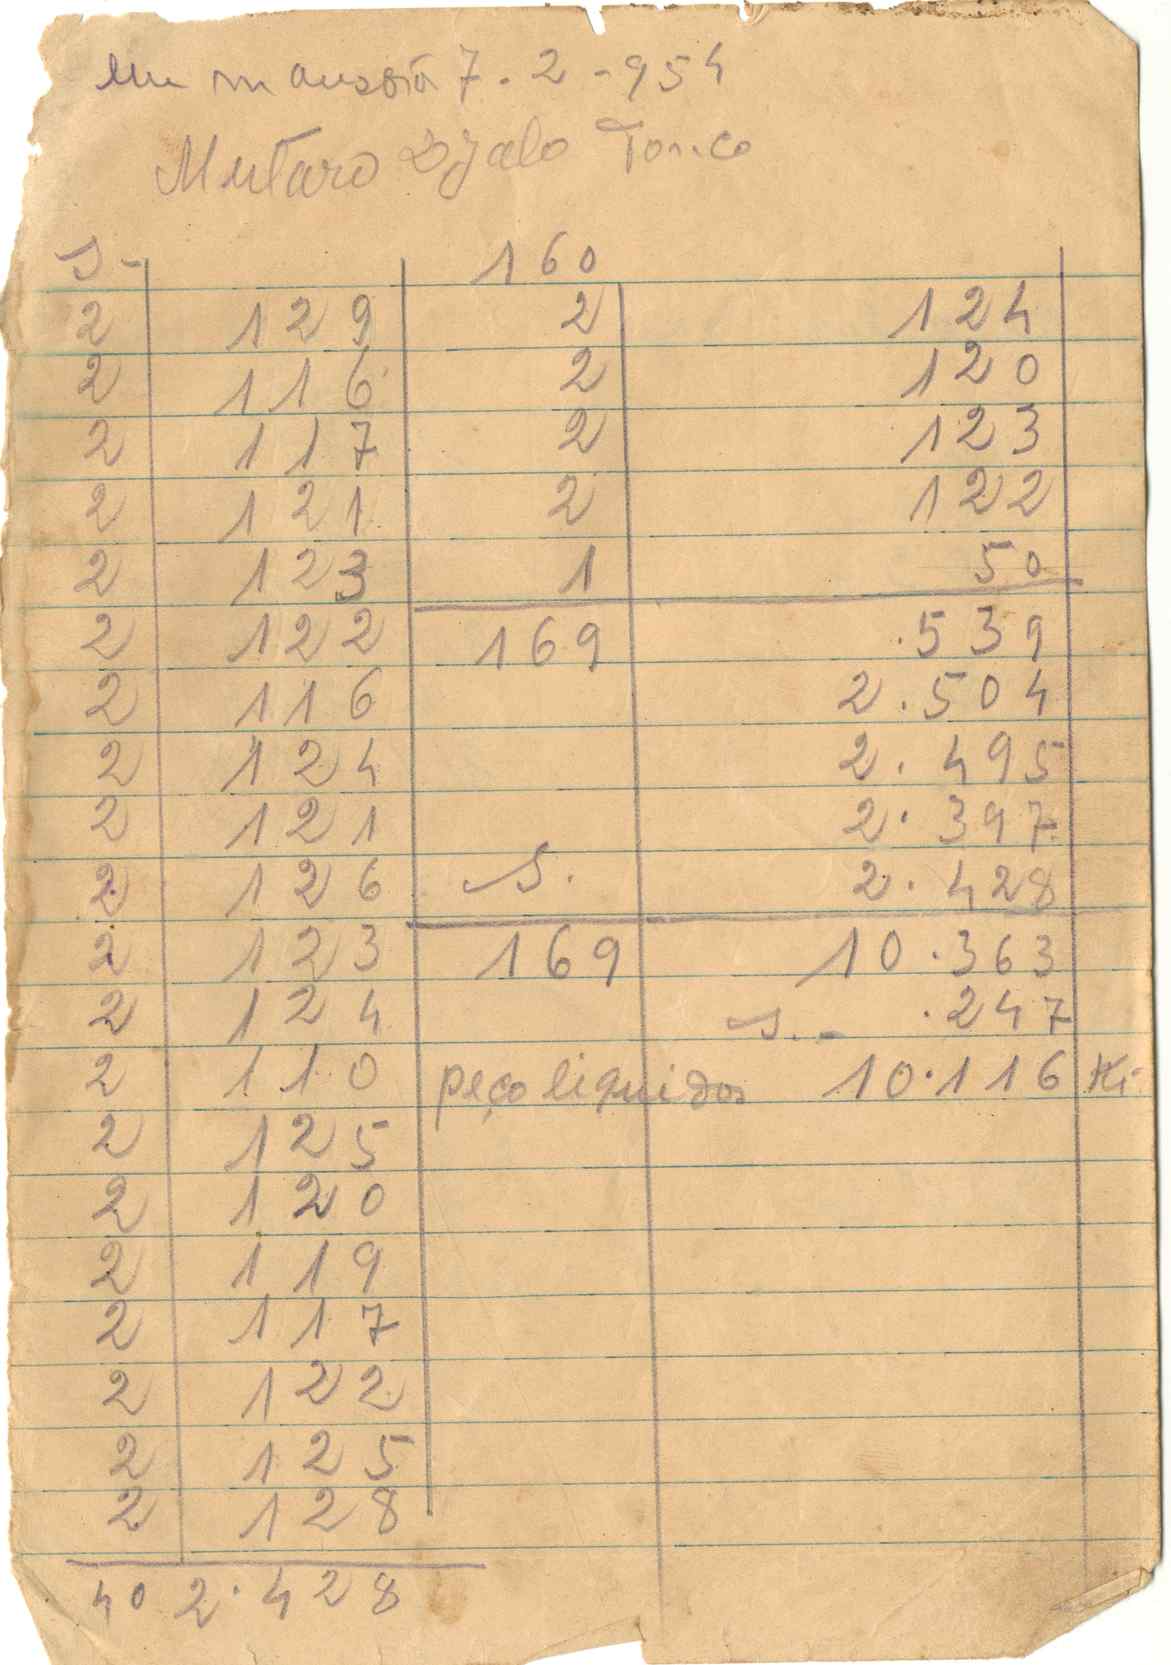 em mansôa 7.2-954
Mutaro Djalo Tonco
S- 160
2 129 2 124
2 116 2 120
2 117 2 123
2 121 2 122
2 123 1 50
2 122 169 .539
2 116 2.504
2 124 2.495
2 121 2.397
2 126 S. 2.428
2 123 169 10.363
2 124 S.- .247
2 110 peço liquidos 10.116 Ki-
2 125
2 120
2 119
2 117
2 122
2 125
2 128
40 2.428